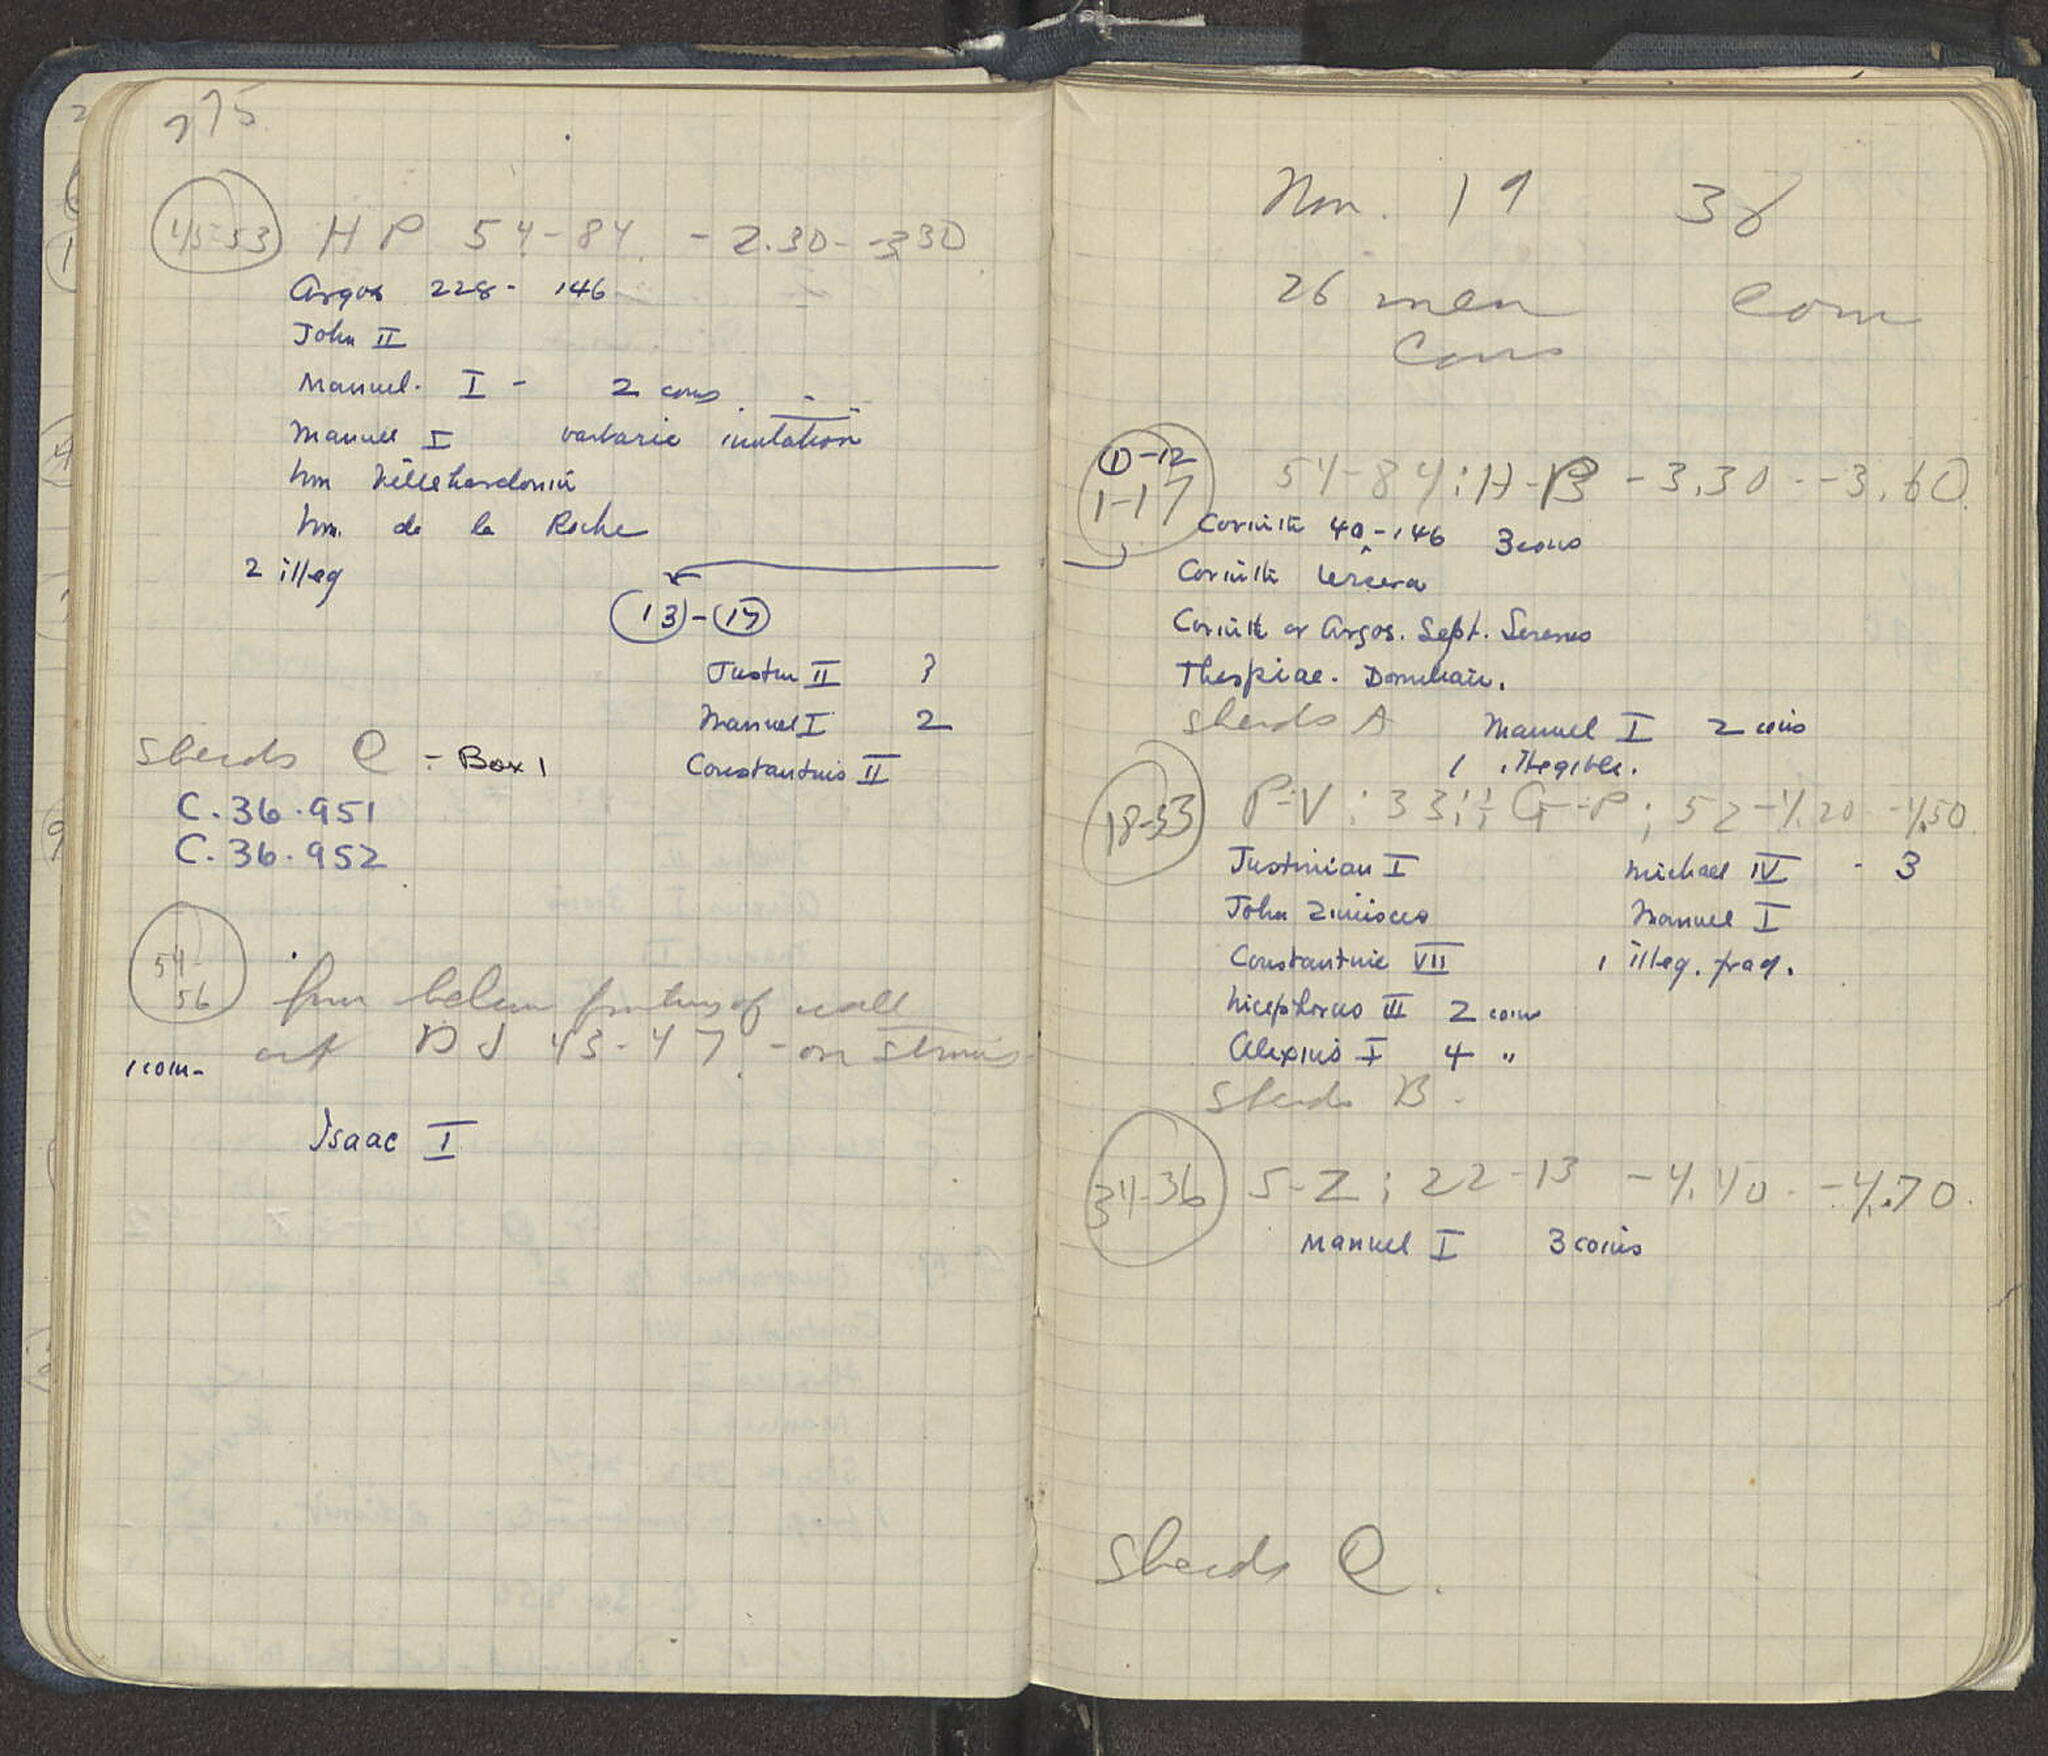 275
45-53 HP 54-84. -2.30--3.30
Argos 228-146
John II
Manuel. I - 2 coins
Manuel I barbaric imitation
Wm Villehardouin
Wm. de la Roche
2 illeg
13-17
Justin II ?
Manuel I 2
Constantius II
Sherds C - Box 1
C.36.951
C.36.952
54-56 from below of wall
at 43-47 - on
1 coin-
Isaac I
Nov. 19 36
26 men com
Cons
1-12
1-17 54-84; H-P -3.30--3.60
Corinth 40-146 3 coins
Corinth
Corinth or Argos. Sept. Severus
Thespiae. Domitian.
Sherds A Manuel I 2 coins
1 illegible.
18-33 P-V; 33; G-P; 52 -4.20 -4.50
Justinian I Michael IV - 3
John Zimisces Manuel I
Constantine VII 1 illeg. frag.
Nicephorus III 2 coins
Alexius I 4 "
Sherds B.
34-36 S-Z; 22-13 -4.40--4.70.
Manuel I 3 coins
Sherds C.